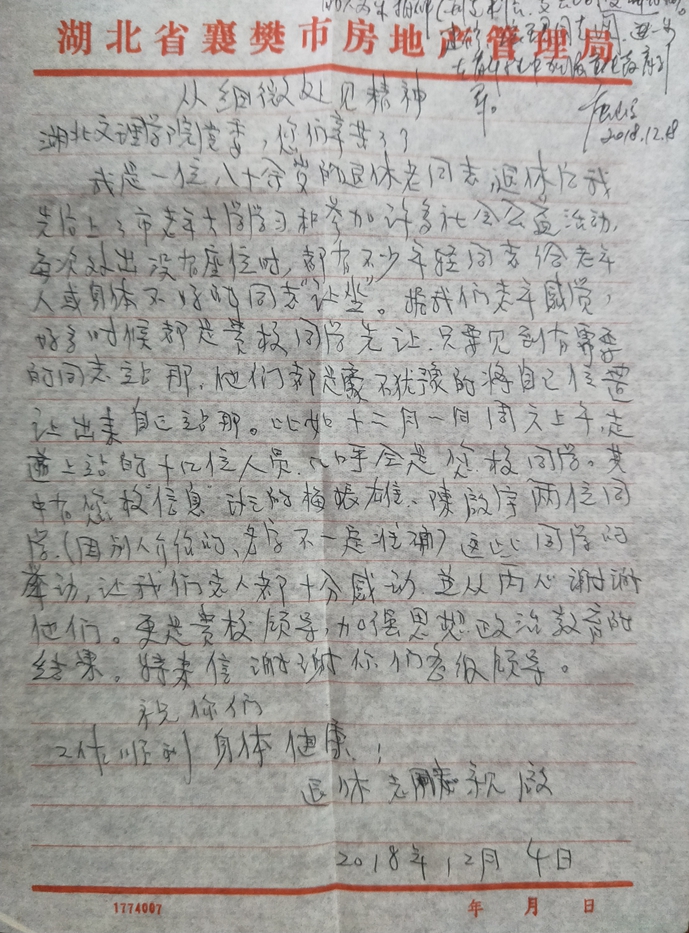 湖北省襄樊市房地产管理局
2018.12.8
从细微处见精神
湖北文理学院党委,您们辛苦了
我是一位八十余岁的退休老同志,退休后我
先后上了市老年大学学习和参加许多社会公益活动,
每次外出没有座位时,都有不少年轻同志给老年
人或身体不好的同志“让坐”。据我们老年感觉,
好多时候都是贵校同学先让,只要见到有需要
的同志站那,他们都是毫不犹豫的将自己位置
让出来自己站那。比如十二月一日周六上午,走
道上站的十几位人员,几乎全是您校同学。其
中有您校“信息”班的 雄、陈啟宇两位同
学。(因别人介绍的,名字不一定准确)这些同学的
举动,让我们老人都十分感动,并从内心谢谢
他们。更是贵校领导,加强思想政治教育的
结果。特来信谢谢你们各级领导。
祝你们
工作顺利 身体健康!
退休老同志 敬啟
2018年12月4日
1774007
年 月 日